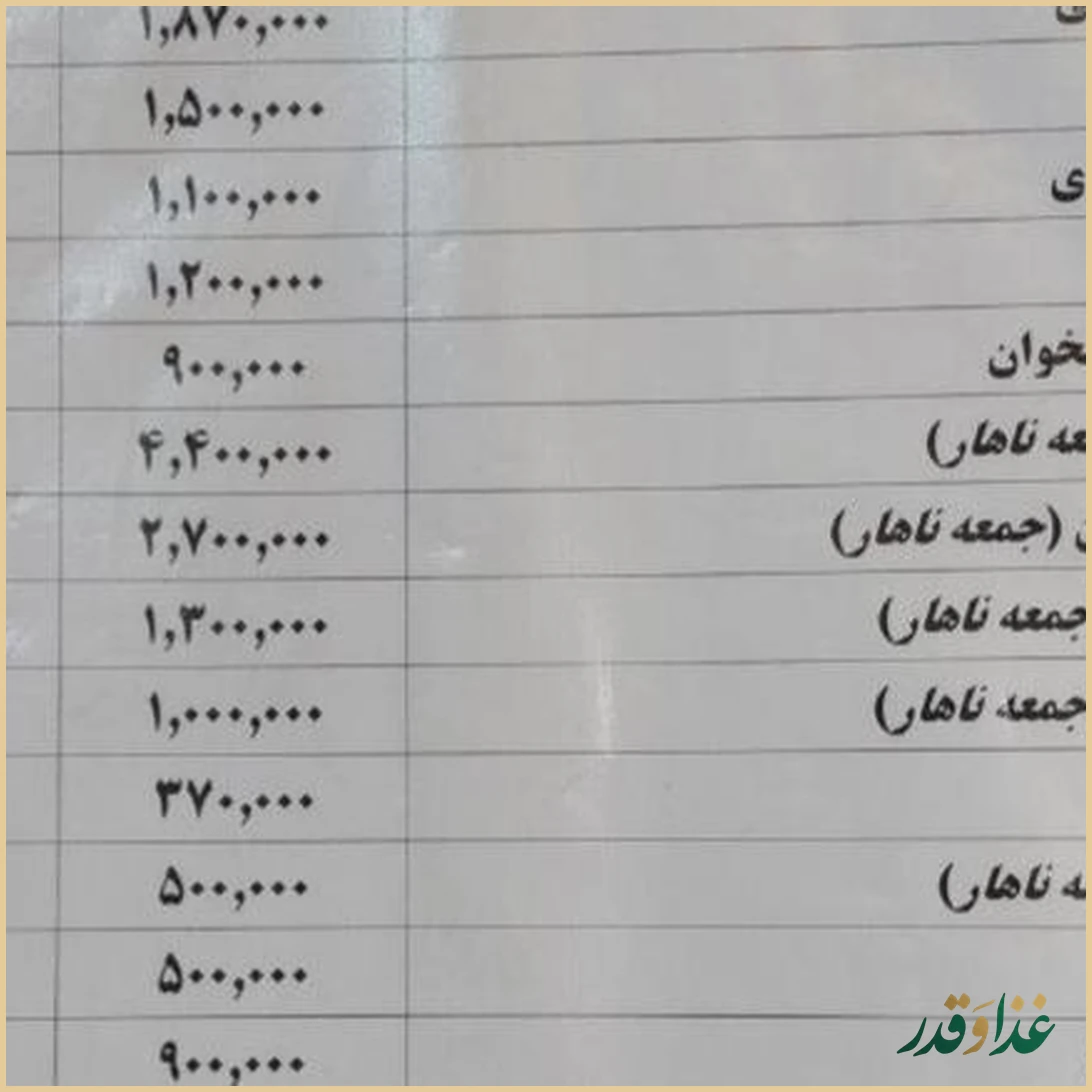 ۱,۸۷۰,۰۰۰
۱,۵۰۰,۰۰۰
ی ۱,۱۰۰,۰۰۰
۱,۲۰۰,۰۰۰
۹۰۰,۰۰۰
ناهار) ۴,۴۰۰,۰۰۰
(جمعه ناهار) ۲,۷۰۰,۰۰۰
جمعه ناهار) ۱,۳۰۰,۰۰۰
جمعه ناهار) ۱,۰۰۰,۰۰۰
۳۷۰,۰۰۰
ناهار) ۵۰۰,۰۰۰
۵۰۰,۰۰۰
۹۰۰,۰۰۰
غذا وَ قدر